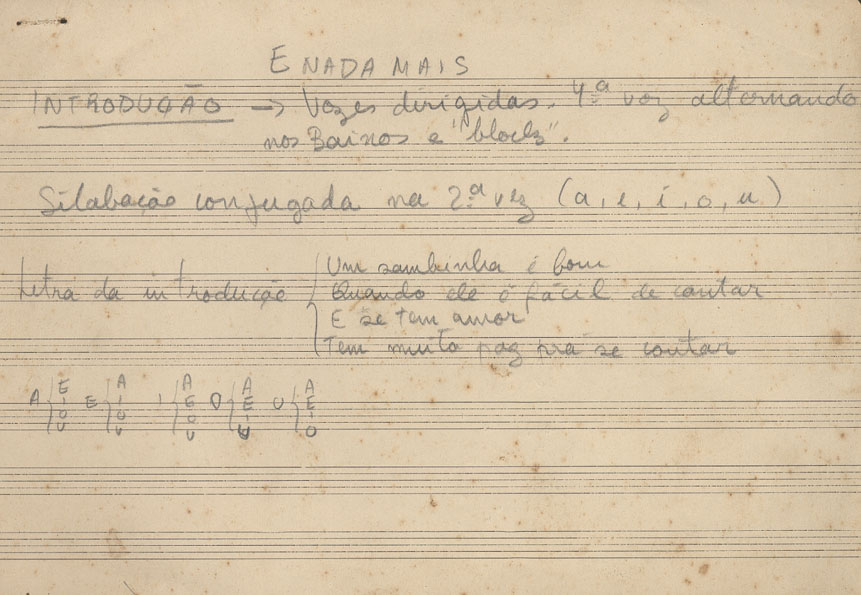 E NADA MAIS
INTRODUÇÃO → Vozes dirigidas. 4ª voz alternando
nos Baixos e "blocks".
Silabação conjugada na 2ª vez (a, e, i, o, u)
Letra da introdução { Um sambinha é bom
Quando ele é fácil de cantar
E se tem amor
Tem muita paz pra se contar
A { E I O U E { A I O U I { A E O U O { A E I U U { A E I O